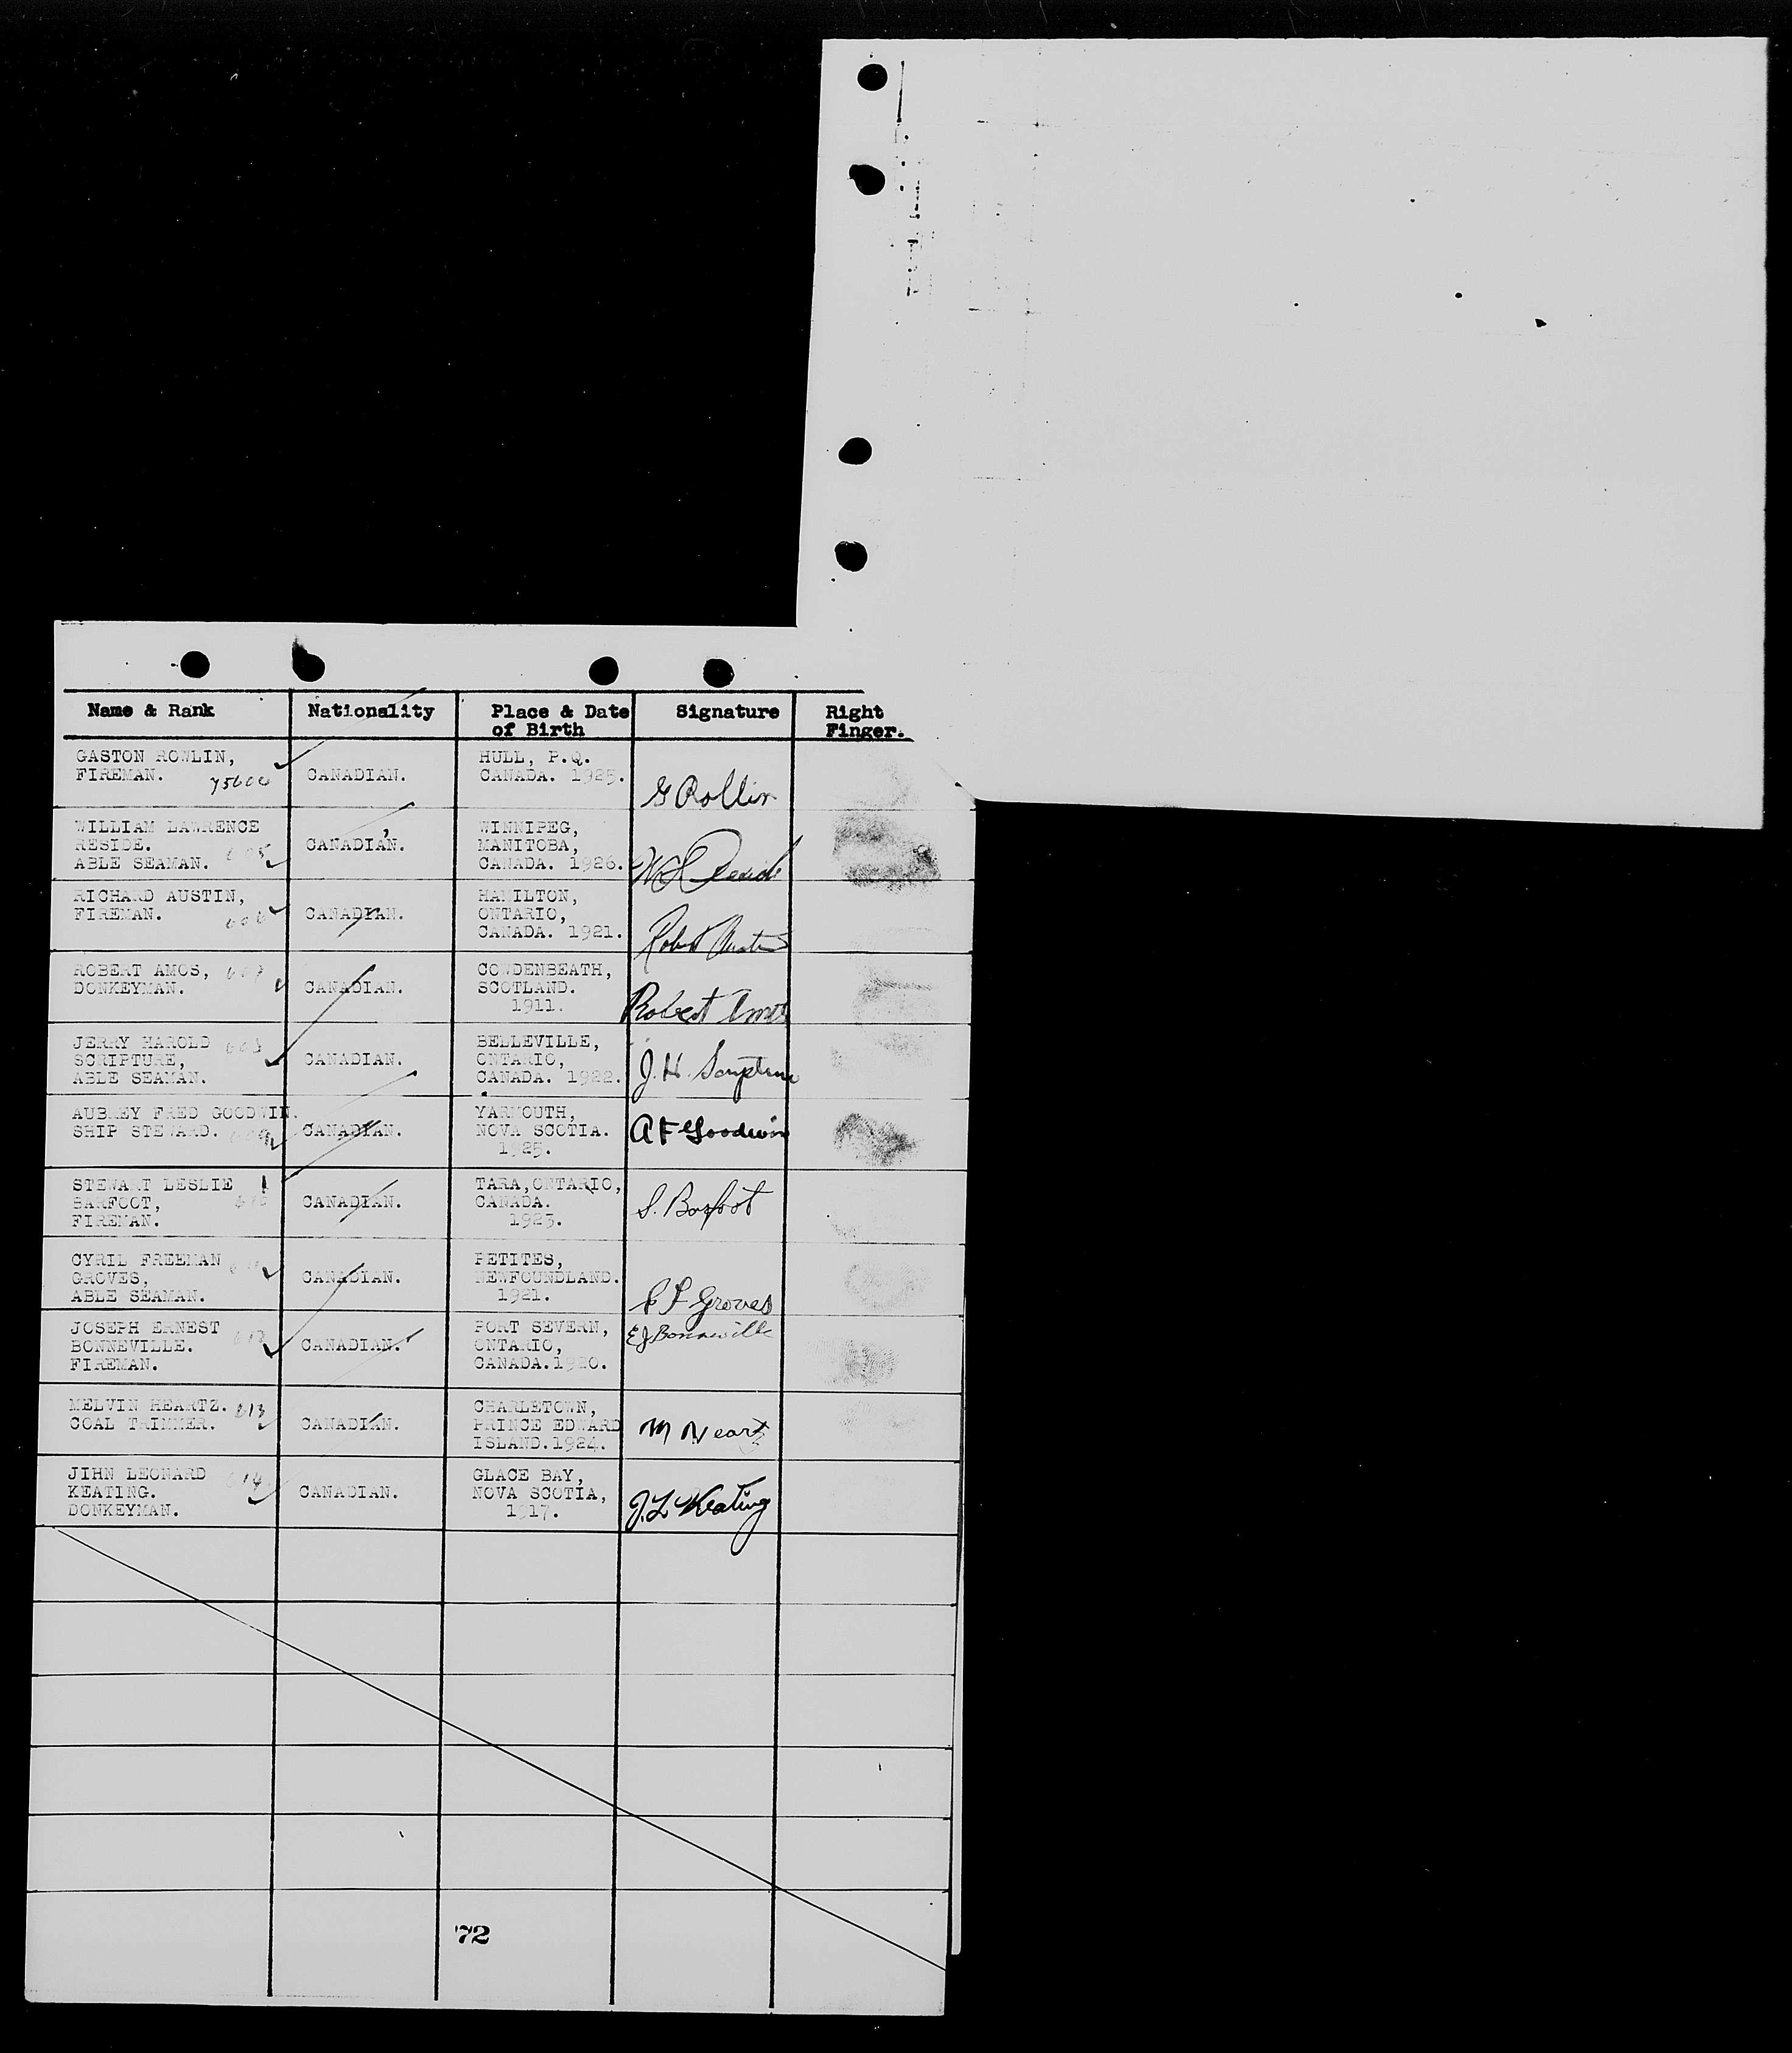 Name & Rank Nationality Place & Date Signature Right
of Birth Finger.
GASTON ROWLIN, HULL, P.Q.
FIREMAN. 75604 CANADIAN. CANADA. 1925.
G Rollin
WILLIAM LAWRENCE WINNIPEG,
RESIDE. CANADIAN. MANITOBA,
ABLE SEAMAN. 605 CANADA. 1926.
RICHARD AUSTIN, HAMILTON,
FIREMAN. 606 CANADIAN. ONTARIO,
CANADA. 1921. Robert Austin
ROBERT AMOS, 607 COWDENBEATH,
DONKEYMAN. CANADIAN. SCOTLAND.
1911. Robert Amos
JERRY HAROLD 608 BELLEVILLE,
SCRIPTURE, CANADIAN. ONTARIO, J.H. Scripture
ABLE SEAMAN. CANADA. 1922.
AUBREY FRED GOODWIN. YARMOUTH,
SHIP STEWARD. CANADIAN. NOVA SCOTIA. A F Goodwin
1925.
STEWART LESLIE TARA, ONTARIO,
BARFOOT, CANADIAN. CANADA. S. Barfoot
FIREMAN. 1923.
CYRIL FREEMAN PETITES,
GROVES, CANADIAN. NEWFOUNDLAND.
ABLE SEAMAN. 1921. C F Groves
JOSEPH ERNEST PORT SEVERN, E J Bonneville
BONNEVILLE. 612 CANADIAN. ONTARIO,
FIREMAN. CANADA. 1920.
MELVIN HEARTZ. 613 CHARLETOWN,
COAL TRIMMER. CANADIAN. PRINCE EDWARD M Heartz
ISLAND. 1924.
JIHN LEONARD 614 GLACE BAY,
KEATING. CANADIAN. NOVA SCOTIA, J.L Keating
DONKEYMAN. 1917.
72